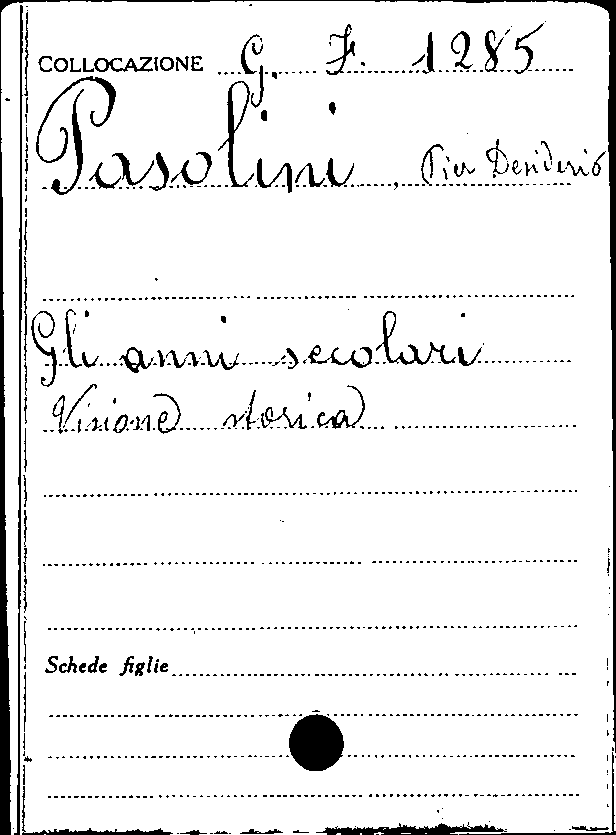 COLLOCAZIONE G. F. 1285
Pasolini, Pier Desiderio
Gli anni secolari
Visione storica
Schede figlie